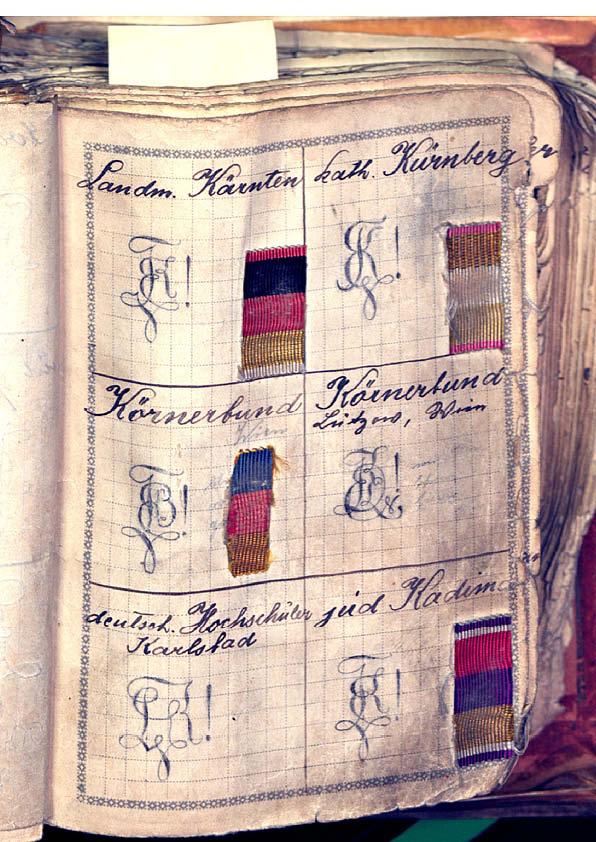 Landm. Kärnten
kath. Kürnberger
Körnerbund
Wien
Körnerbund
Lützow, Wien
deutsch. Hochschüler
Karlsbad
jüd Kadima